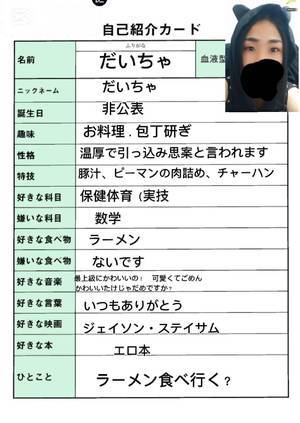 自己紹介カード
ふりがな
名前 だいちゃ 血液型
ニックネーム だいちゃ
誕生日 非公表
趣味 お料理 . 包丁研ぎ
性格 温厚で引っ込み思案と言われます
特技 豚汁、ピーマンの肉詰め、チャーハン
好きな科目 保健体育 (実技
嫌いな科目 数学
好きな食べ物 ラーメン
嫌いな食べ物 ないです
好きな音楽 最上級にかわいいの! 可愛くてごめん
かわいいだけじゃだめですか?
好きな言葉 いつもありがとう
好きな映画 ジェイソン・ステイサム
好きな本 エロ本
ひとこと ラーメン食べ行く?